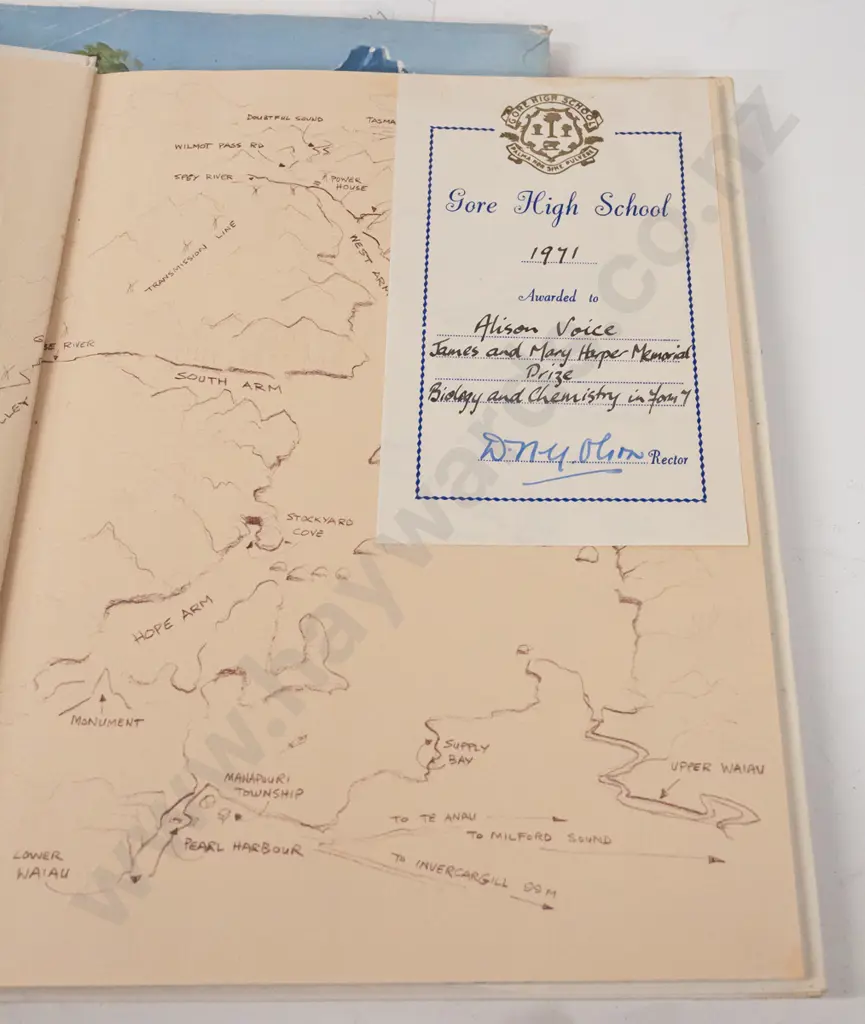 DOUBTFUL SOUND
TASMA
WILMOT PASS RD
SPEY RIVER
POWER
HOUSE
WEST ARM
TRANSMISSION LINE
RIVER
SOUTH ARM
LLEY
STOCKYARD
COVE
HOPE ARM
MONUMENT
SUPPLY
BAY
UPPER WAIAU
MANAPOURI
TOWNSHIP
TO TE ANAU
TO MILFORD SOUND
PEARL HARBOUR
TO INVERCARGILL 99M
LOWER
WAIAU
GORE HIGH SCHOOL
PALMA NON SINE PULVERE
Gore High School
1971
Awarded to
Alison Voice
James and Mary Harper Memorial
Prize
Biology and Chemistry in form 7
Rector
www.haywards.co.nz